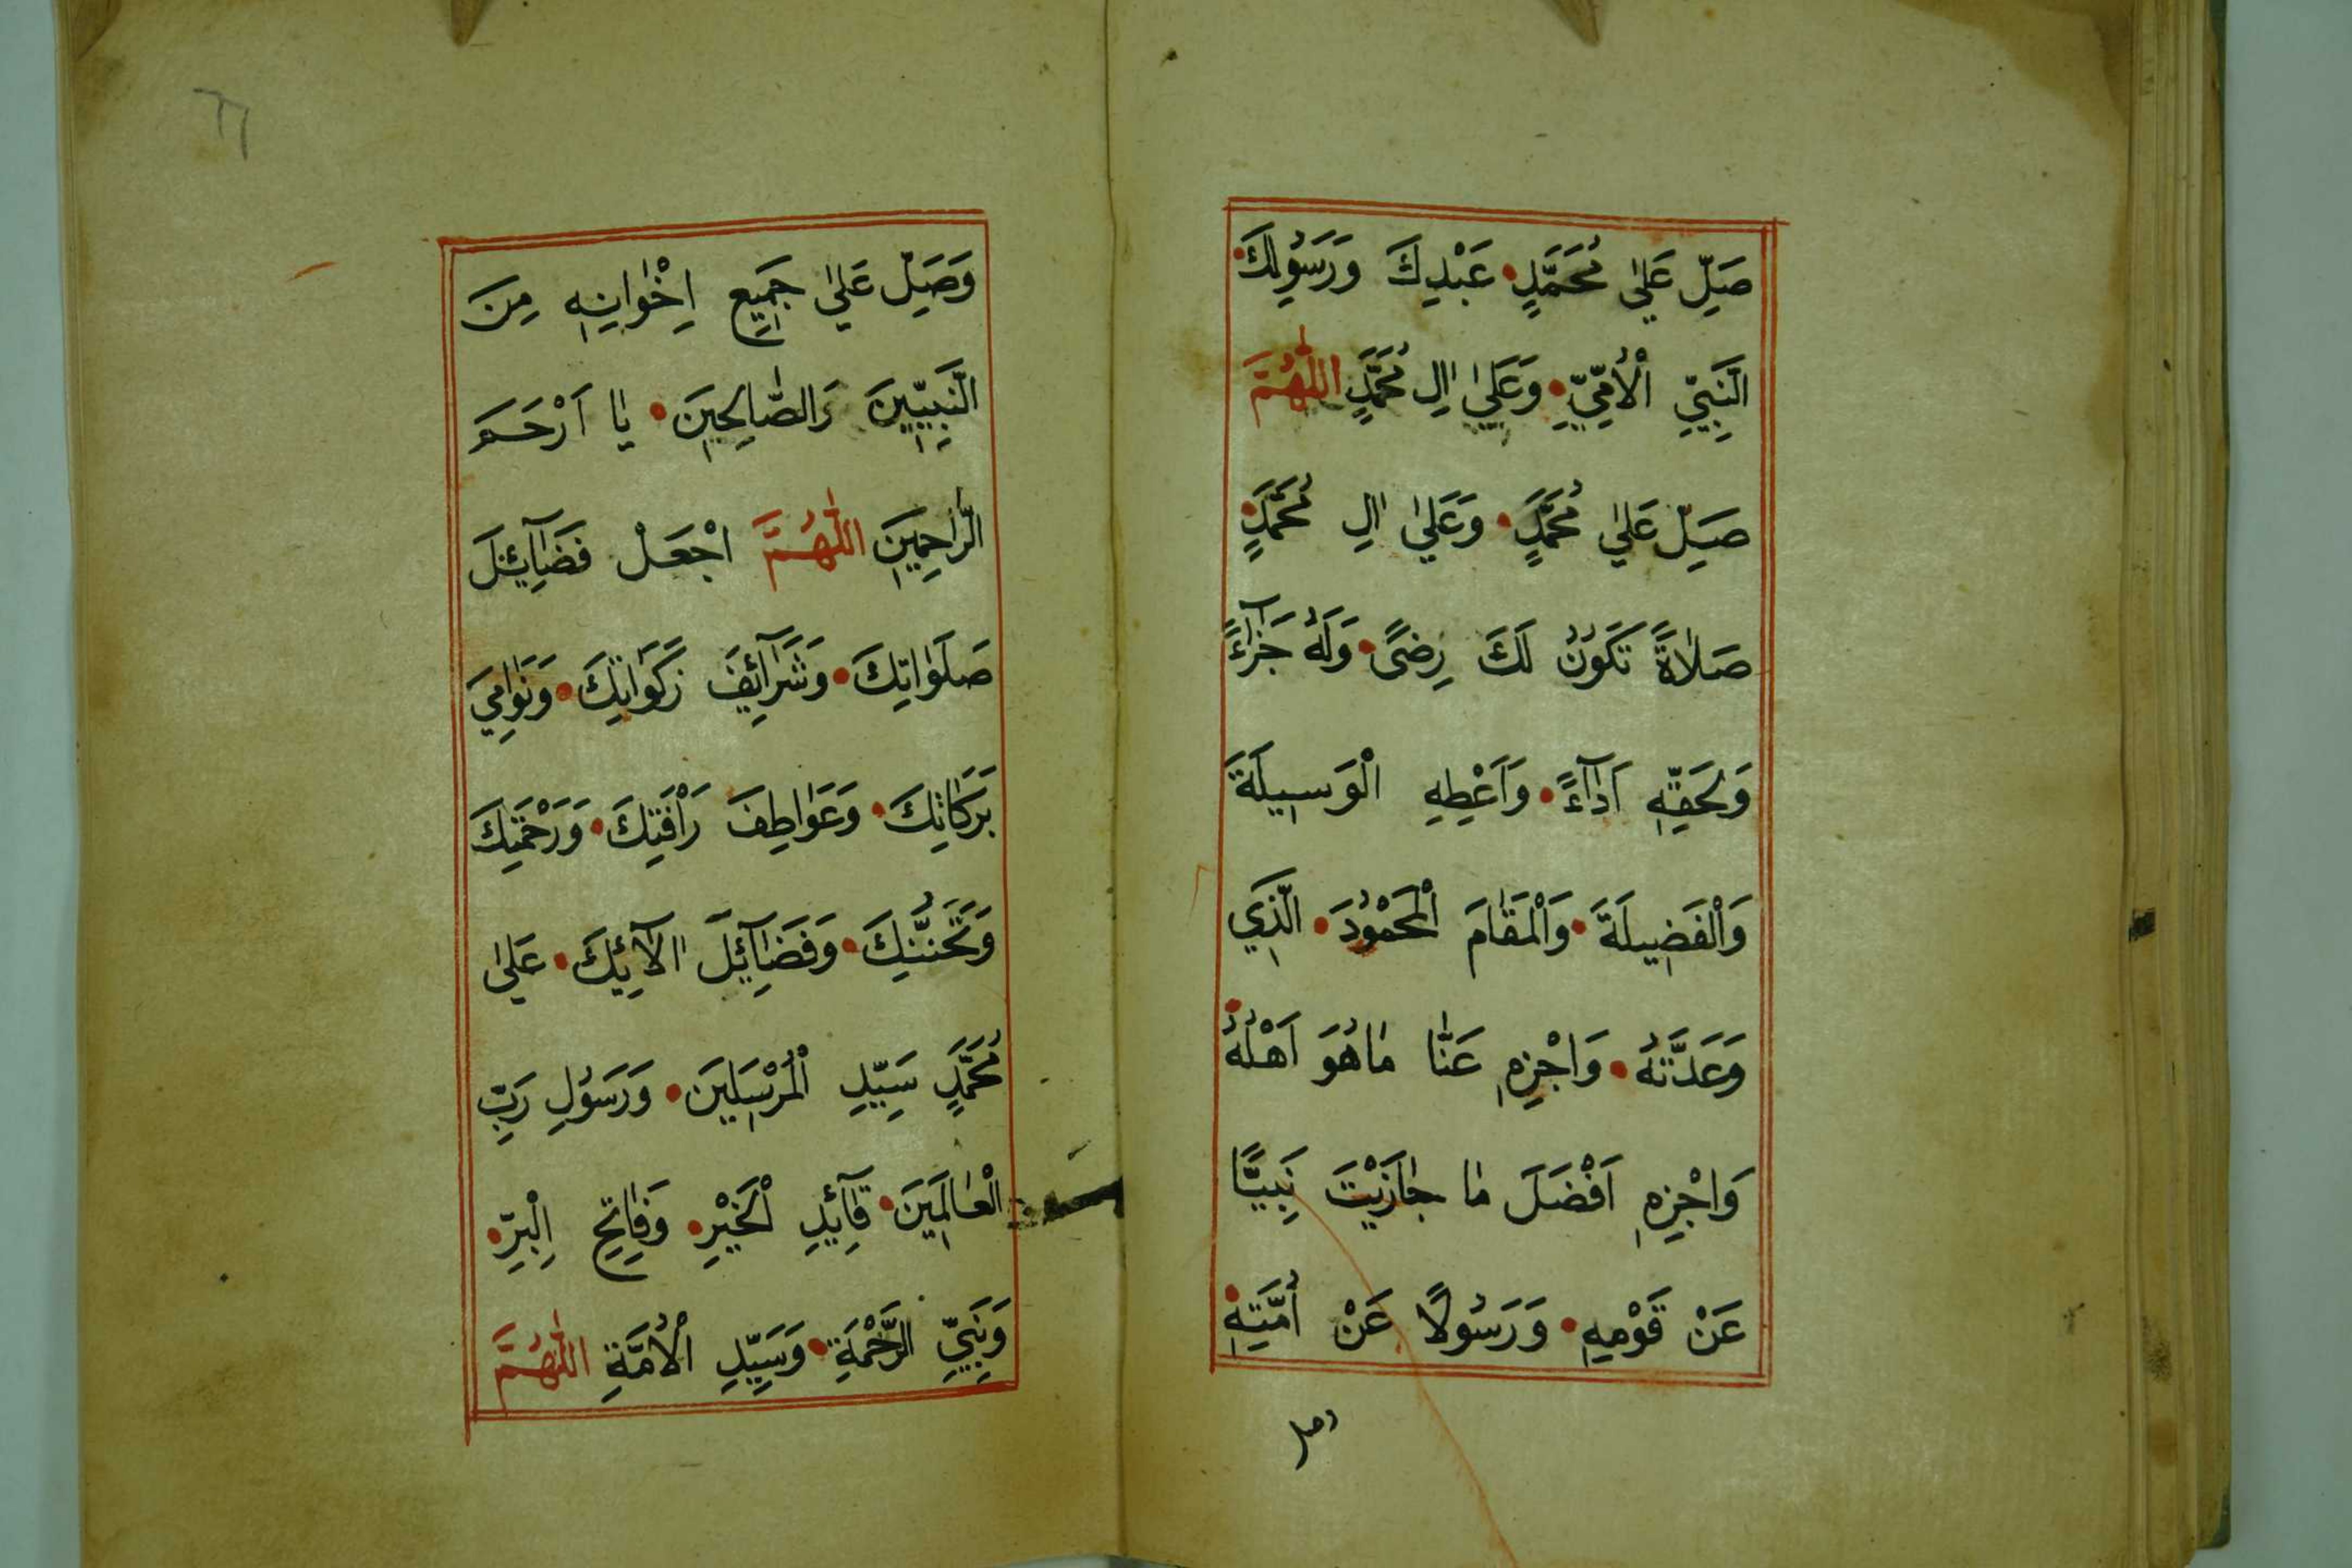 صَلِّ عَلٰي مُحَمَّدٍ• عَبْدِكَ وَرَسُولِكَ•
النَّبِيِّ الْاُمِّيِّ• وَعَلٰي اٰلِ مُحَمَّدٍ اللّٰهُمَّ
صَلِّ عَلٰي مُحَمَّدٍ• وَعَلٰي اٰلِ مُحَمَّدٍ•
صَلَاةً تَكُونُ لَكَ رِضًى• وَلَهُ جَزَآءً
وَلِحَقِّهِ اَدَآءً• وَاَعْطِهِ الْوَسِيلَةَ
وَالْفَضِيلَةَ• وَالْمَقَامَ الْمَحْمُودَ• الَّذِي
وَعَدْتَّهُ• وَاجْزِهِ عَنَّا مَا هُوَ اَهْلُهُ•
وَاجْزِهِ اَفْضَلَ مَا جَازَيْتَ نَبِيًّا
عَنْ قَوْمِهِ• وَرَسُولًا عَنْ اُمَّتِهِ•
وصل
٦٦
وَصَلِّ عَلٰي جَمِيعِ اِخْوَانِهِ مِنَ
النَّبِيِّينَ وَالصَّالِحِينَ• يَا اَرْحَمَ
الرَّاحِمِينَ اللّٰهُمَّ اجْعَلْ فَضَآئِلَ
صَلَوَاتِكَ• وَشَرَآئِفَ زَكَوَاتِكَ• وَنَوَامِيَ
بَرَكَاتِكَ• وَعَوَاطِفَ رَاْفَتِكَ• وَرَحْمَتِكَ
وَتَحَنُّنِكَ• وَفَضَآئِلَ اٰلَآئِكَ• عَلٰي
مُحَمَّدٍ سَيِّدِ الْمُرْسَلِينَ• وَرَسُولِ رَبِّ
الْعَالَمِينَ• قَآئِدِ الْخَيْرِ• وَفَاتِحِ الْبِرِّ•
وَنَبِيِّ الرَّحْمَةِ• وَسَيِّدِ الْاُمَّةِ اللّٰهُمَّ